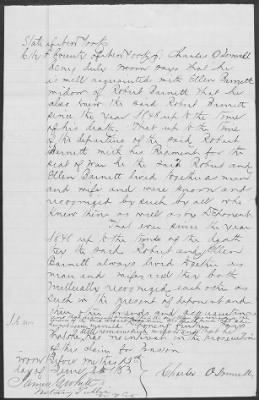 State of New York
City & County of New York Charles O'Donnell
being duly sworn says that he
is well acquainted with Ellen Barnett
widow of Robert Barnett that he
also knew the said Robert Barnett
since the year 1848 up to the time
of his death. That up to the time
of the departure of the said Robert
Barnett with his Regiment for the
seat of War he the said Robert and
Ellen Barnett lived together as man
and wife and were known and
recognized by such by all who
knew them as well as by Deponent.
That ever since the year
1848 up to the time of the death
the said Robert and Ellen
Barnett always lived together as
man and wife and they both
Mutually recognized each other as
such in the presence of deponent and
their friends and acquaintances
and that he
has no interest in the prosecution
of this claim for Pension
Sworn before me this
day of June 1863 Charles O'Donnell
James
Notary Public